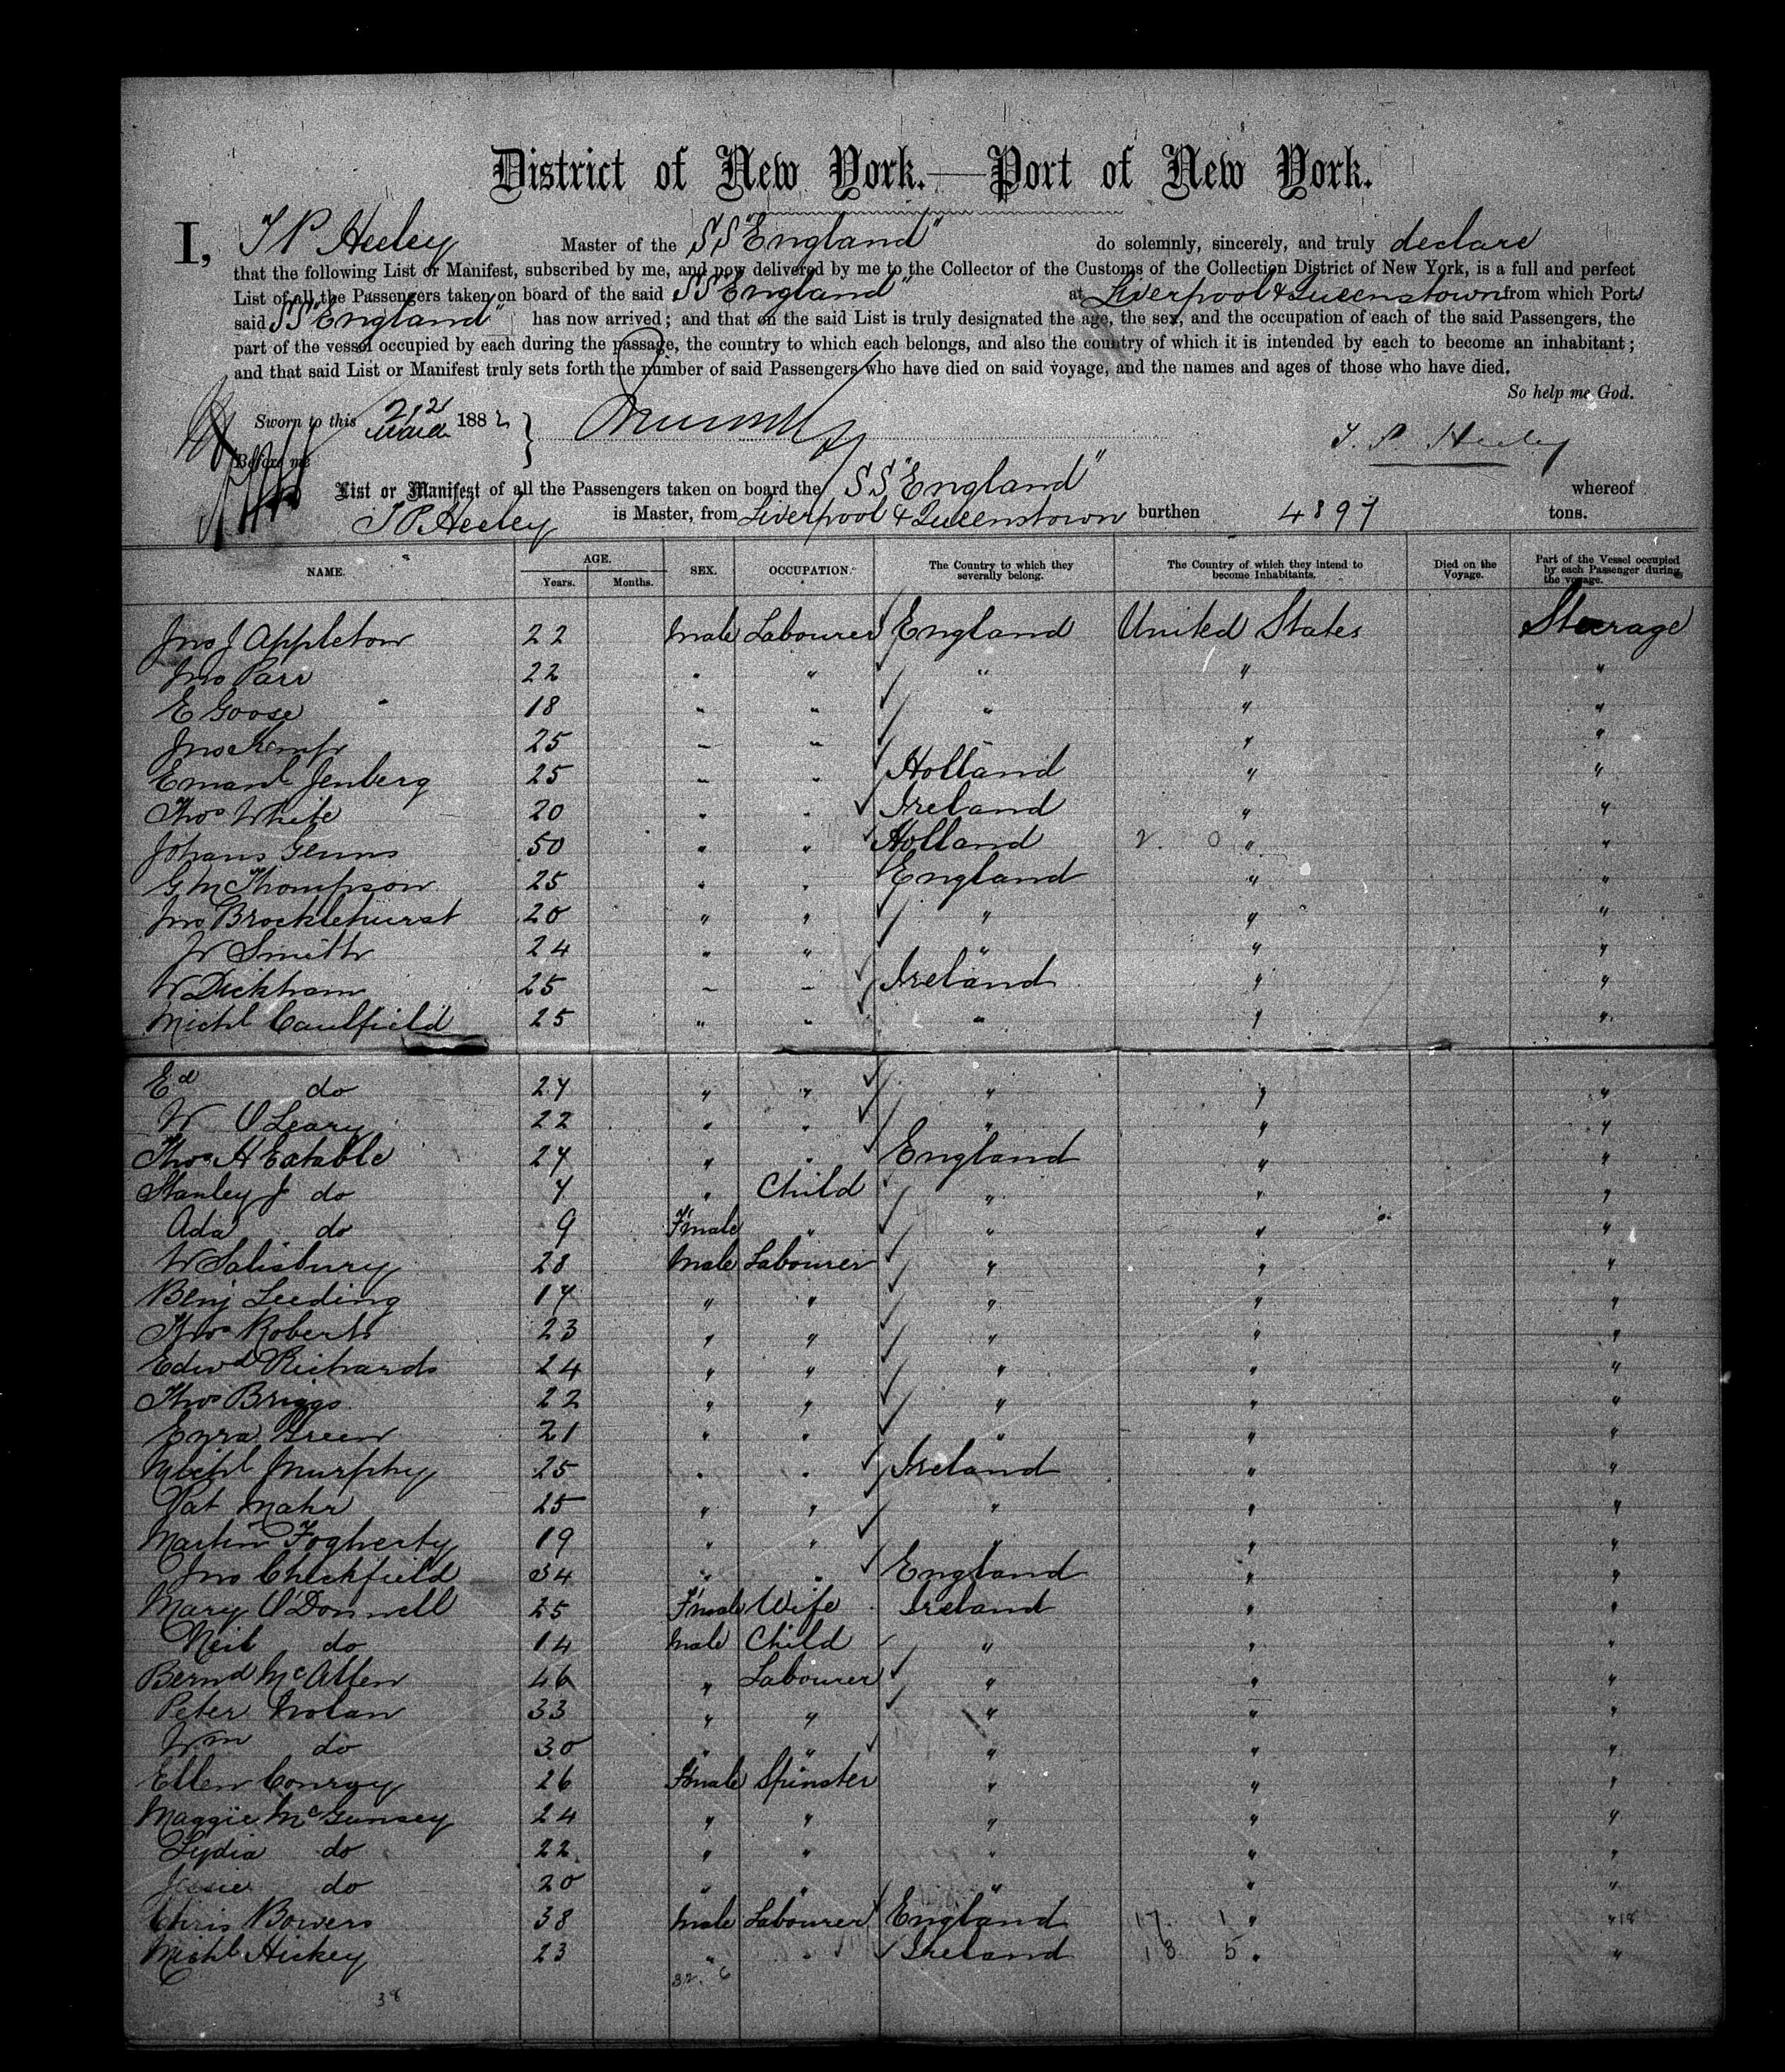 District of New York.—Port of New York.
I, T P Heeley Master of the SS "England" do solemnly, sincerely, and truly declare
that the following List or Manifest, subscribed by me, and now delivered by me to the Collector of the Customs of the Collection District of New York, is a full and perfect
List of all the Passengers taken on board of the said SS "England" at Liverpool & Queenstown from which Ports
said SS "England" has now arrived; and that on the said List is truly designated the age, the sex, and the occupation of each of the said Passengers, the
part of the vessel occupied by each during the passage, the country to which each belongs, and also the country of which it is intended by each to become an inhabitant;
and that said List or Manifest truly sets forth the number of said Passengers who have died on said voyage, and the names and ages of those who have died.
So help me God.
Sworn to this 1882
T. P. Heeley
Before me
List or Manifest of all the Passengers taken on board the SS "England" whereof
T P Heeley is Master, from Liverpool & Queenstown burthen 4897 tons.
NAME. AGE. Years. Months. SEX. OCCUPATION. The Country to which they severally belong. The Country of which they intend to become Inhabitants. Died on the Voyage. Part of the Vessel occupied by each Passenger during the voyage.
Jno J Appleton 22 Male Labourer England United States Steerage
Jno Parr 22 " " " " "
E Goose 18 " " " " "
Jno Kemp 25 " " " " "
Emanl Jenberg 25 " " Holland " "
Thos White 20 " " Ireland " "
Johans 50 " " Holland " "
G M Thompson 25 " " England " "
Jno Brocklehurst 20 " " " " "
W Smith 24 " " " " "
W Dickham 25 " " Ireland " "
Michl Caulfield 25 " " " " "
Ed do 27 " " " " "
W O'Leary 22 " " " " "
Thos H Eatable 27 " " England " "
Stanley J do 7 " Child " " "
Ada do 9 Fmale " " " "
W Salisbury 28 Male Labourer " " "
Benj Leeding 17 " " " " "
Thos Roberts 23 " " " " "
Edwd Richards 24 " " " " "
Thos Briggs 22 " " " " "
Ezra Green 21 " " " " "
Michl Murphy 25 " " Ireland " "
Pat Mahr 25 " " " " "
Martin Fogherty 19 " " " " "
Jno Checkfield 34 " " England " "
Mary O'Donnell 25 Fmale Wife Ireland " "
Neil do 14 Male Child " " "
Bernd McAtten 46 " Labourer " " "
Peter Nolan 33 " " " " "
Wm do 30 " " " " "
Ellen Conroy 26 Fmale Spinster " " "
Maggie McGunsey 24 " " " " "
Lydia do 22 " " " " "
Jessie do 20 " " " " "
Chris Bowers 38 Male Labourer England " "
Michl Hickey 23 " " Ireland " "
38